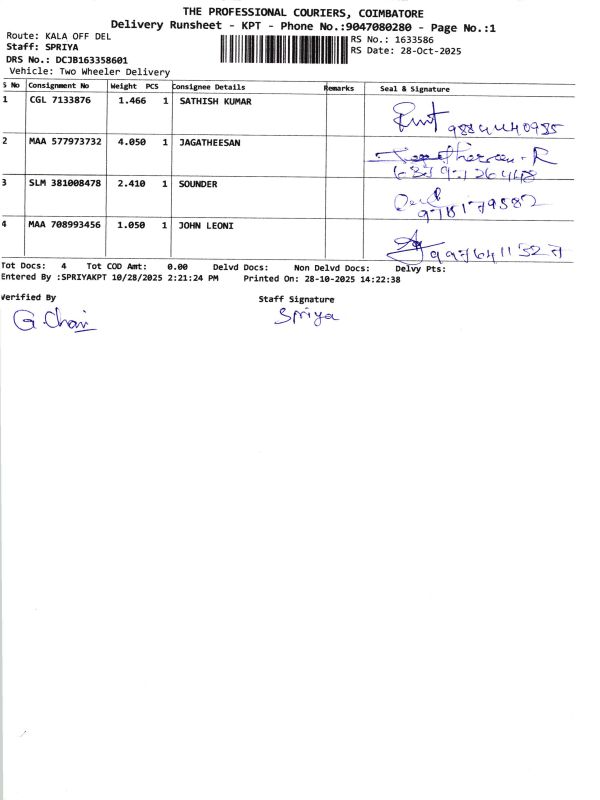 THE PROFESSIONAL COURIERS, COIMBATORE
Delivery Runsheet - KPT - Phone No.:9047080280 - Page No.:1
Route: KALA OFF DEL
RS No.: 1633586
Staff: SPRIYA
RS Date: 28-Oct-2025
DRS No.: DCJB163358601
Vehicle: Two Wheeler Delivery
S No Consignment No Weight PCS Consignee Details Remarks Seal & Signature
1 CGL 7133876 1.466 1 SATHISH KUMAR
2 MAA 577973732 4.050 1 JAGATHEESAN
3 SLM 381008478 2.410 1 SOUNDER
4 MAA 708993456 1.050 1 JOHN LEONI
Tot Docs: 4 Tot COD Amt: 0.00 Delvd Docs: Non Delvd Docs: Delvy Pts:
Entered By :SPRIYAKPT 10/28/2025 2:21:24 PM Printed On: 28-10-2025 14:22:38
Verified By Staff Signature
Spriya